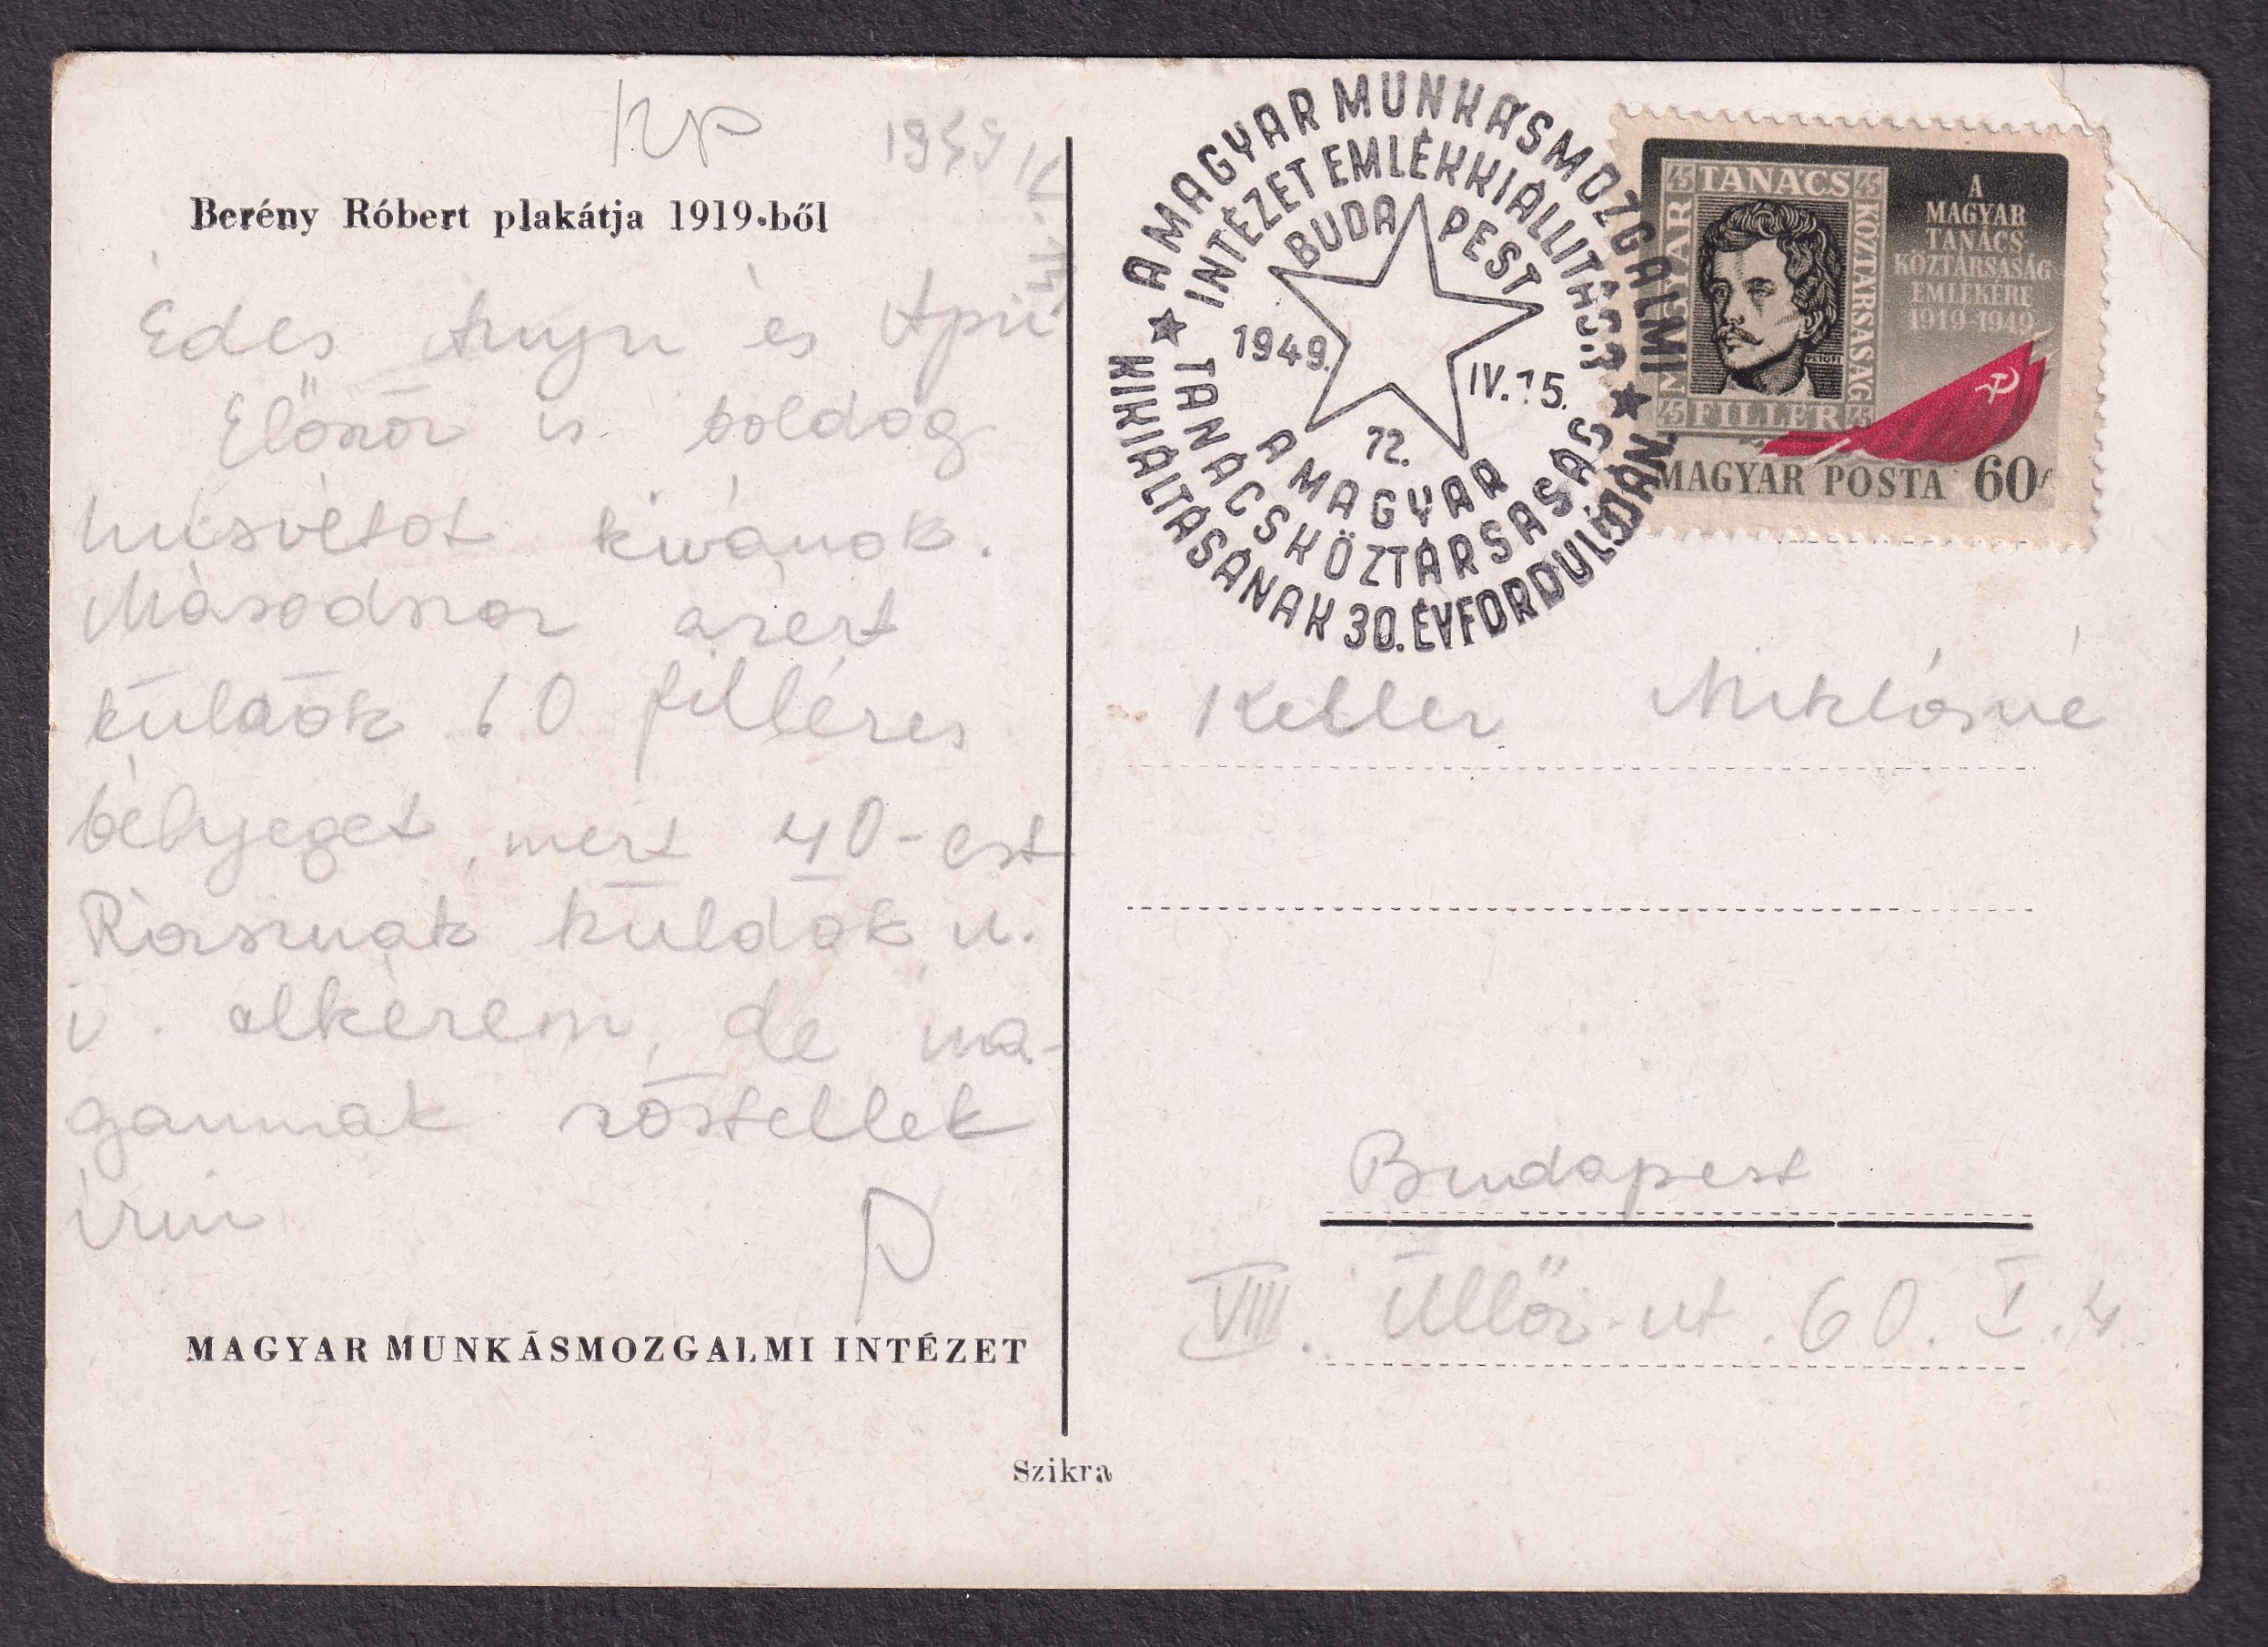 KP
1949 IV. 15
Berény Róbert plakátja 1919-ből
Édes Anyu és Apu
Először is boldog
húsvétot kivánok.
Másodszor azért
küldök 60 filléres
bélyeget, mert 40-est
küldök u.
i. elkérem, de ma-
gamnak röstellek
írni
P
MAGYAR MUNKÁSMOZGALMI INTÉZET
Szikra
A MAGYAR MUNKÁSMOZGALMI
INTÉZET EMLÉKKIÁLLITÁSA
BUDAPEST
1949. IV. 15.
72.
A MAGYAR
TANÁCSKÖZTÁRSASÁG
KIKIÁLTÁSÁNAK 30. ÉVFORDULÓJÁN
45 TANÁCS 45
MAGYAR
KÖZTÁRSASÁG
PETŐFI
45 FILLÉR 45
A
MAGYAR
TANÁCS-
KÖZTÁRSASÁG
EMLÉKÉRE
1919-1949
MAGYAR POSTA 60f
Keller Miklósné
Budapest
VIII. Üllői-ut. 60. I. 4.